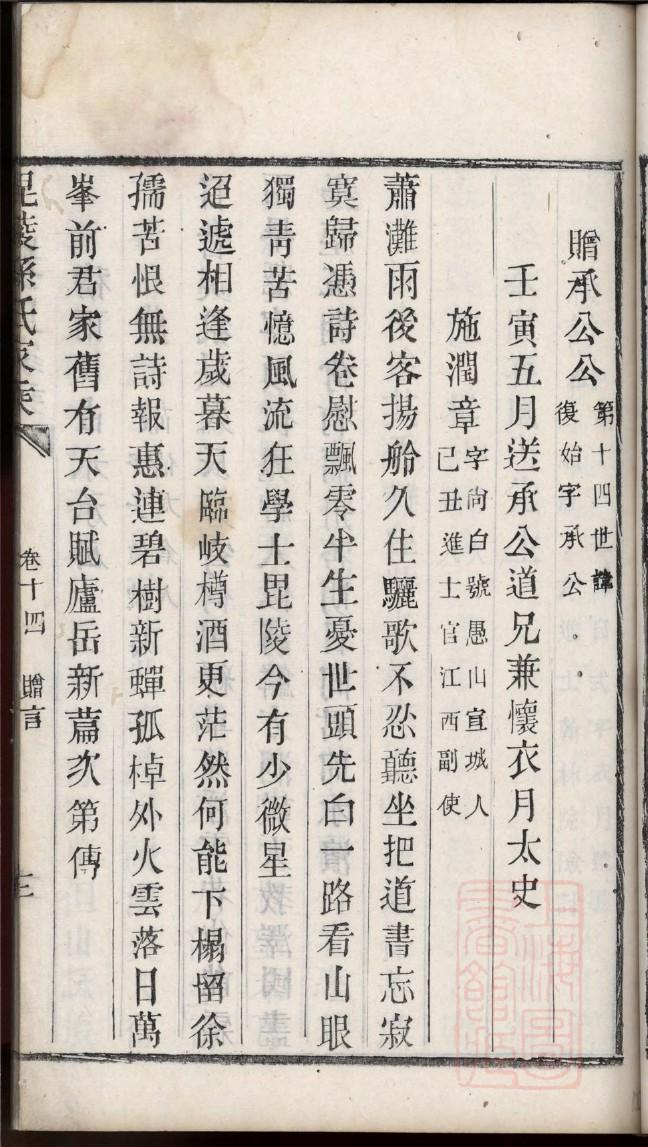 贈承公公第十四世諱復始字承公
壬寅五月送承公道兄兼懷衣月太史
施潤章字尙白號愚山宣城人己丑進士官江西副使
蕭灘雨後客揚舲久住驪歌不忍聽坐把道書忘寂
寞歸憑詩卷慰飄零半生憂世頭先白一路看山眼
獨靑苦憶風流狂學士毘陵今有少微星
迢遞相逢歲暮天臨岐樽酒更茫然何能下榻留徐
孺苦恨無詩報惠連碧樹新蟬孤棹外火雲落日萬
峯前君家舊有天台賦廬岳新篇次第傳
毘陵孫氏家乘
卷十四 贈言
三
上海圖書館藏